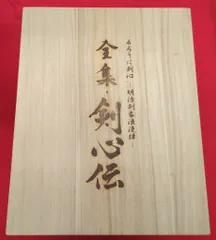 るろうに剣心 -明治剣客浪漫譚-
全集・剣心伝